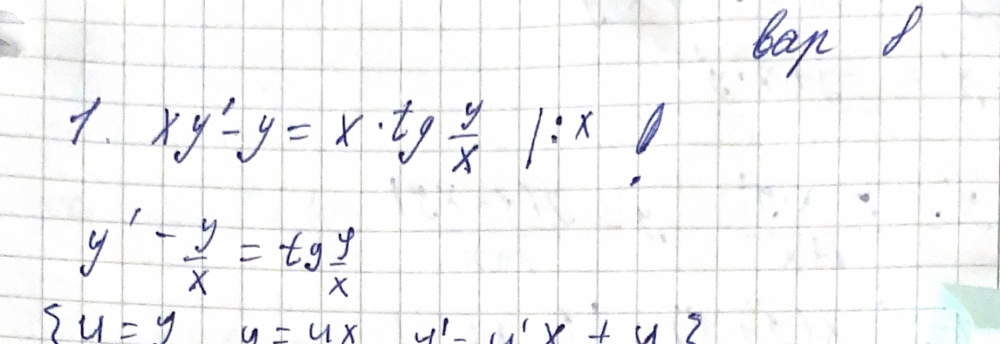 вар 8
1. xy' - y = x · tg y/x |: x !
y' - y/x = tg y/x
{u = y y = ux y' = u'x + u}